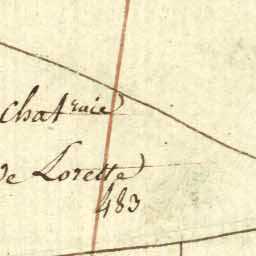 chat.raie
de Lorette
483